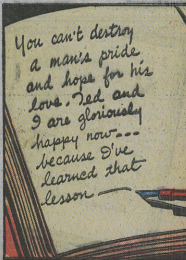 You can't destroy
a man's pride
and hope for his
love. Ted and
I are gloriously
happy now---
because I've
learned that
lesson —